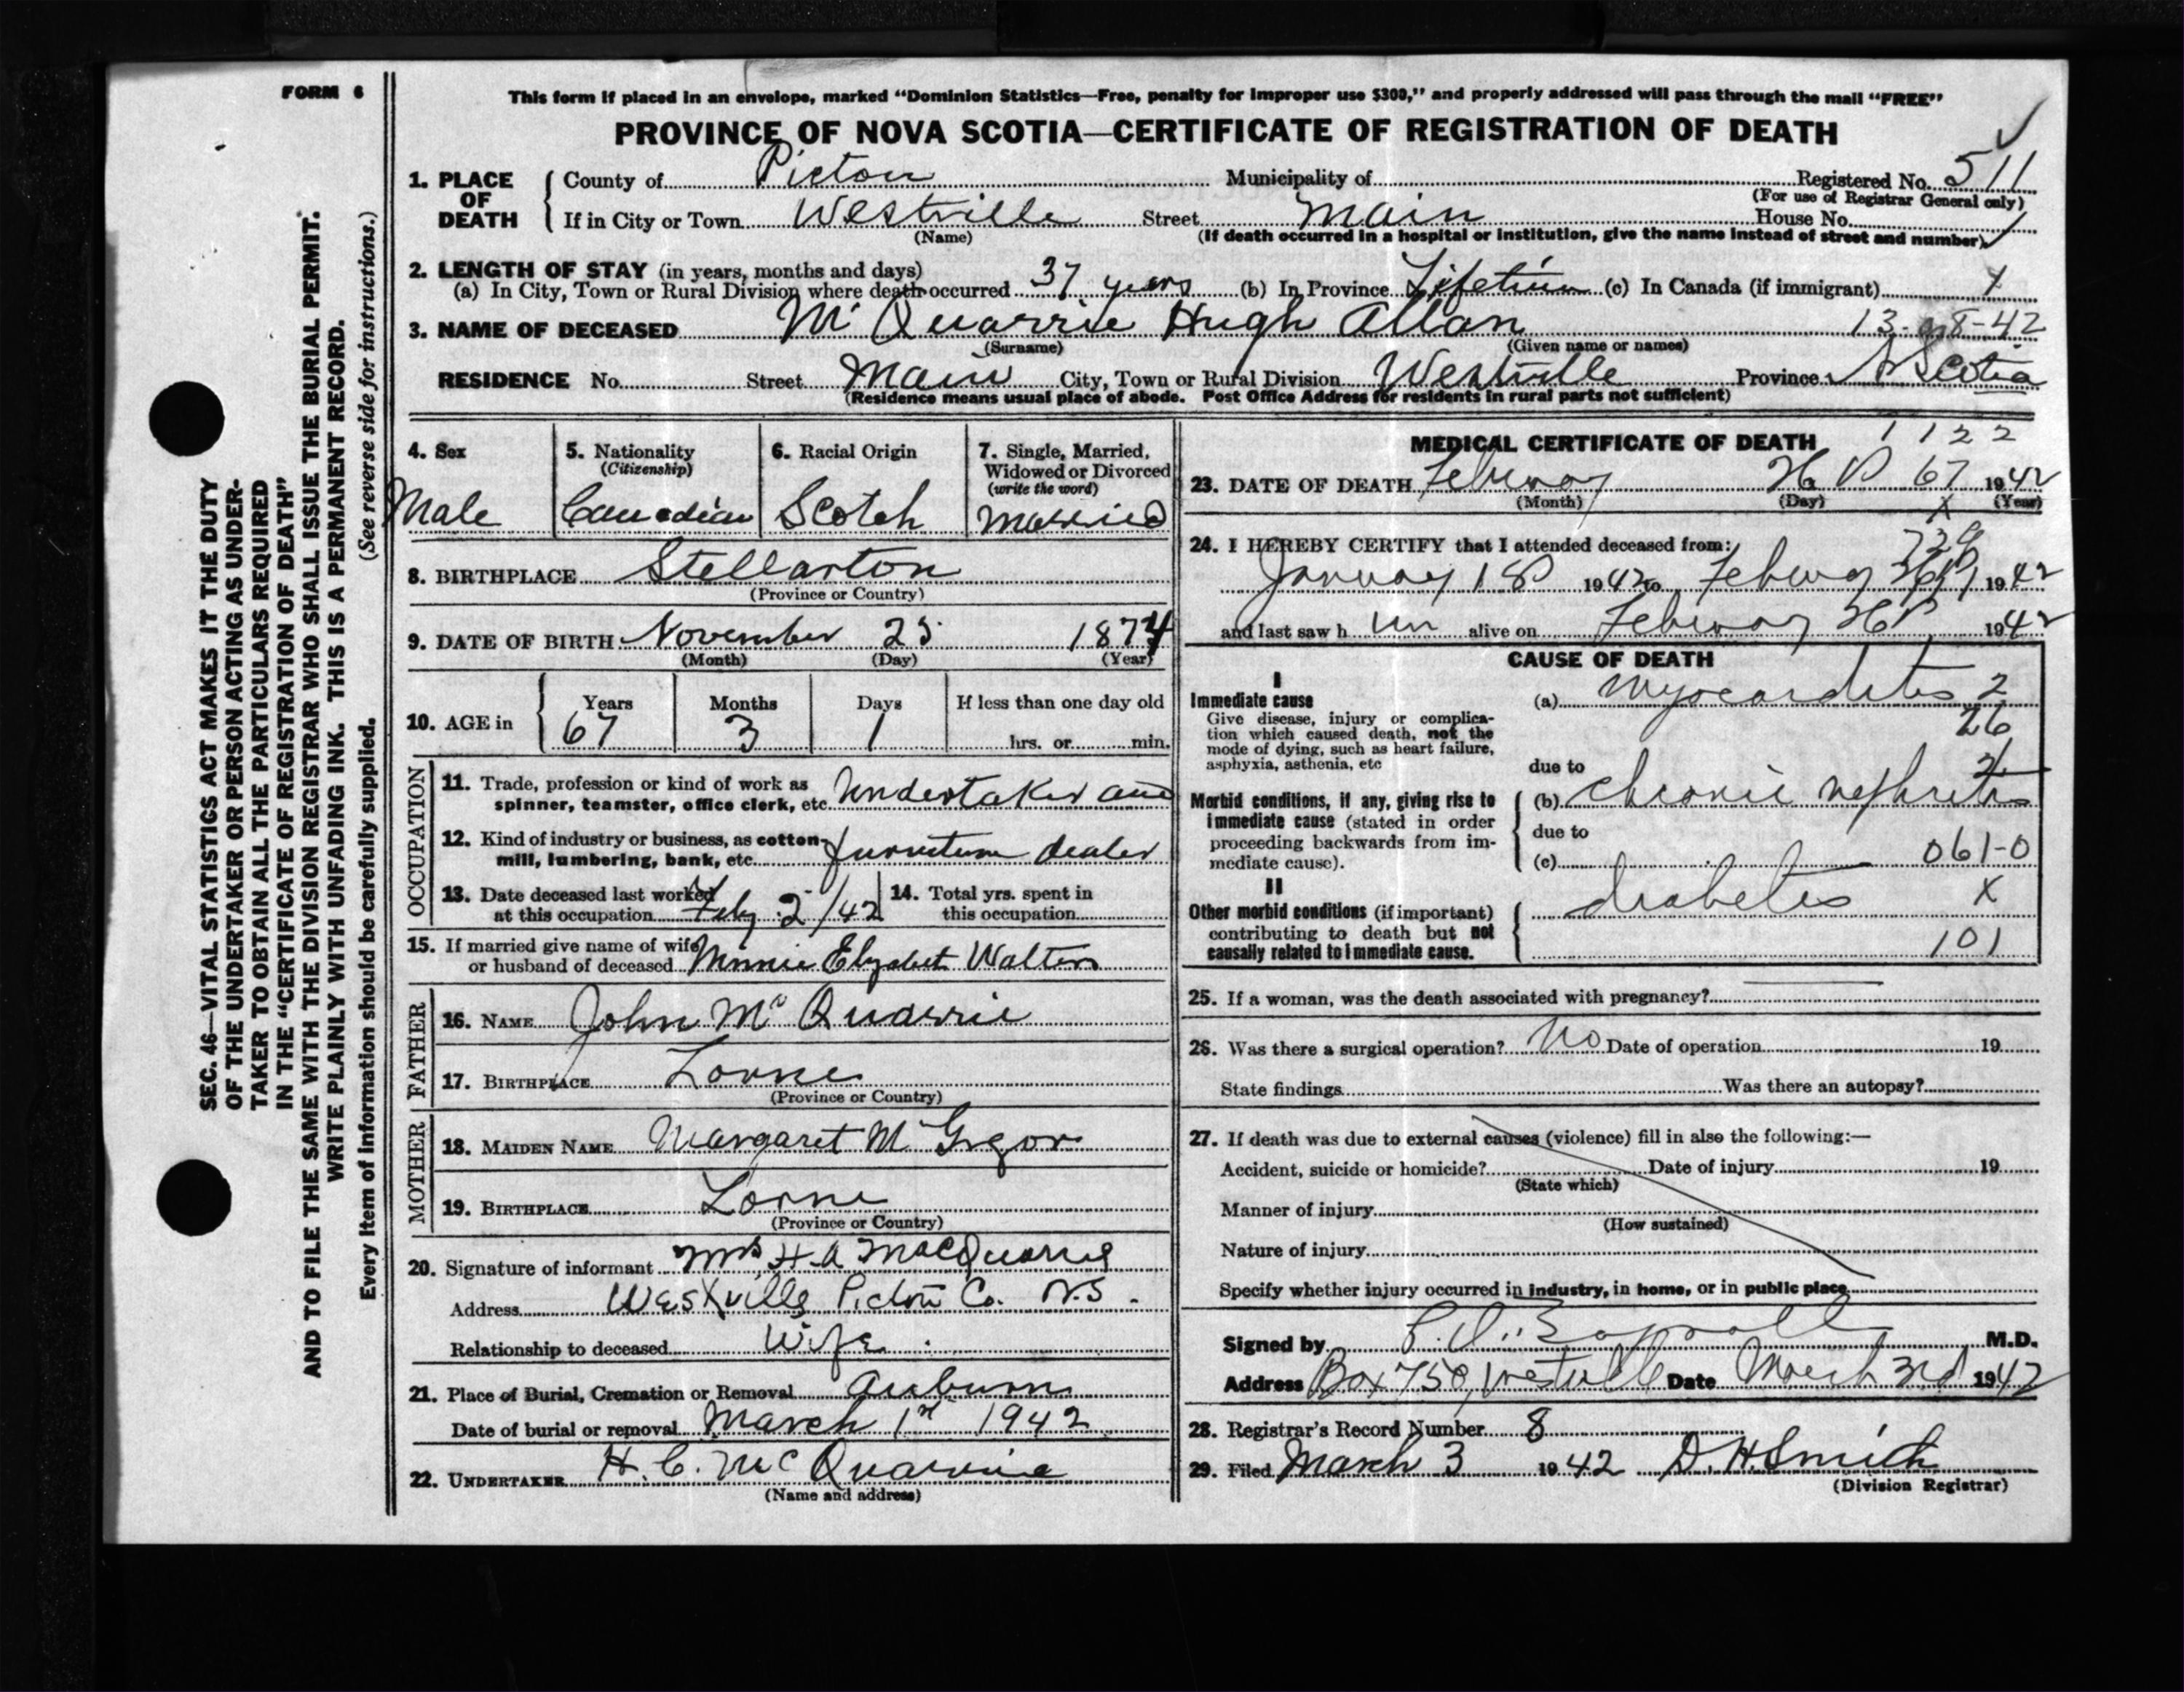 FORM 6
This form if placed in an envelope, marked “Dominion Statistics—Free, penalty for improper use $300,” and properly addressed will pass through the mail “FREE”
PROVINCE OF NOVA SCOTIA—CERTIFICATE OF REGISTRATION OF DEATH
1. PLACE OF DEATH
County of Pictou Municipality of Registered No. 511
(For use of Registrar General only)
If in City or Town Westville Street Main House No.
(Name) (If death occurred in a hospital or institution, give the name instead of street and number)
2. LENGTH OF STAY (in years, months and days)
(a) In City, Town or Rural Division where death occurred 37 years (b) In Province Lifetime (c) In Canada (if immigrant)
3. NAME OF DECEASED McQuarrie Hugh Allan
(Surname) (Given name or names)
RESIDENCE No. Street Main City, Town or Rural Division Westville Province N Scotia
(Residence means usual place of abode. Post Office Address for residents in rural parts not sufficient)
4. Sex
Male
5. Nationality
(Citizenship)
Canadian
6. Racial Origin
Scotch
7. Single, Married,
Widowed or Divorced
(write the word)
Married
8. BIRTHPLACE Stellarton
(Province or Country)
9. DATE OF BIRTH November 25 1874
(Month) (Day) (Year)
10. AGE in
Years Months Days If less than one day old
67 3 1 hrs. or min.
OCCUPATION
11. Trade, profession or kind of work as
spinner, teamster, office clerk, etc. Undertaker and
12. Kind of industry or business, as cotton-
mill, lumbering, bank, etc. furniture dealer
13. Date deceased last worked
at this occupation Feby 2/42
14. Total yrs. spent in
this occupation
15. If married give name of wife
or husband of deceased Minnie Elizabeth Walters
FATHER
16. NAME John McQuarrie
17. BIRTHPLACE Lorne
(Province or Country)
MOTHER
18. MAIDEN NAME Margaret McGregor
19. BIRTHPLACE Lorne
(Province or Country)
20. Signature of informant Mrs H A MacQuarrie
Address Westville Pictou Co. N.S.
Relationship to deceased Wife
21. Place of Burial, Cremation or Removal Auburn
Date of burial or removal March 1st 1942
22. UNDERTAKER H. C. McQuarrie
(Name and address)
1122
MEDICAL CERTIFICATE OF DEATH
23. DATE OF DEATH February 26 67 1942
(Month) (Day) (Year)
24. I HEREBY CERTIFY that I attended deceased from:
January 1942 to February 1942
and last saw h im alive on February 26 1942
CAUSE OF DEATH
I
Immediate cause
Give disease, injury or complica-
tion which caused death, not the
mode of dying, such as heart failure,
asphyxia, asthenia, etc
(a) Myocarditis 2
26
due to
Morbid conditions, if any, giving rise to
immediate cause (stated in order
proceeding backwards from im-
mediate cause).
(b) chronic nephritis
due to
(c) 061-0
II
Other morbid conditions (if important)
contributing to death but not
causally related to immediate cause.
diabetes X
101
25. If a woman, was the death associated with pregnancy?
26. Was there a surgical operation? No Date of operation 19
State findings Was there an autopsy?
27. If death was due to external causes (violence) fill in also the following:—
Accident, suicide or homicide? Date of injury 19
(State which)
Manner of injury
(How sustained)
Nature of injury
Specify whether injury occurred in industry, in home, or in public place
Signed by M.D.
Address Box 750, Westville Date March 3rd 1942
28. Registrar's Record Number 8
29. Filed March 3 1942 D. H Smith
(Division Registrar)
SEC. 46—VITAL STATISTICS ACT MAKES IT THE DUTY
OF THE UNDERTAKER OR PERSON ACTING AS UNDER-
TAKER TO OBTAIN ALL THE PARTICULARS REQUIRED
IN THE “CERTIFICATE OF REGISTRATION OF DEATH”
AND TO FILE THE SAME WITH THE DIVISION REGISTRAR WHO SHALL ISSUE THE BURIAL PERMIT.
WRITE PLAINLY WITH UNFADING INK. THIS IS A PERMANENT RECORD.
Every item of information should be carefully supplied. (See reverse side for instructions.)